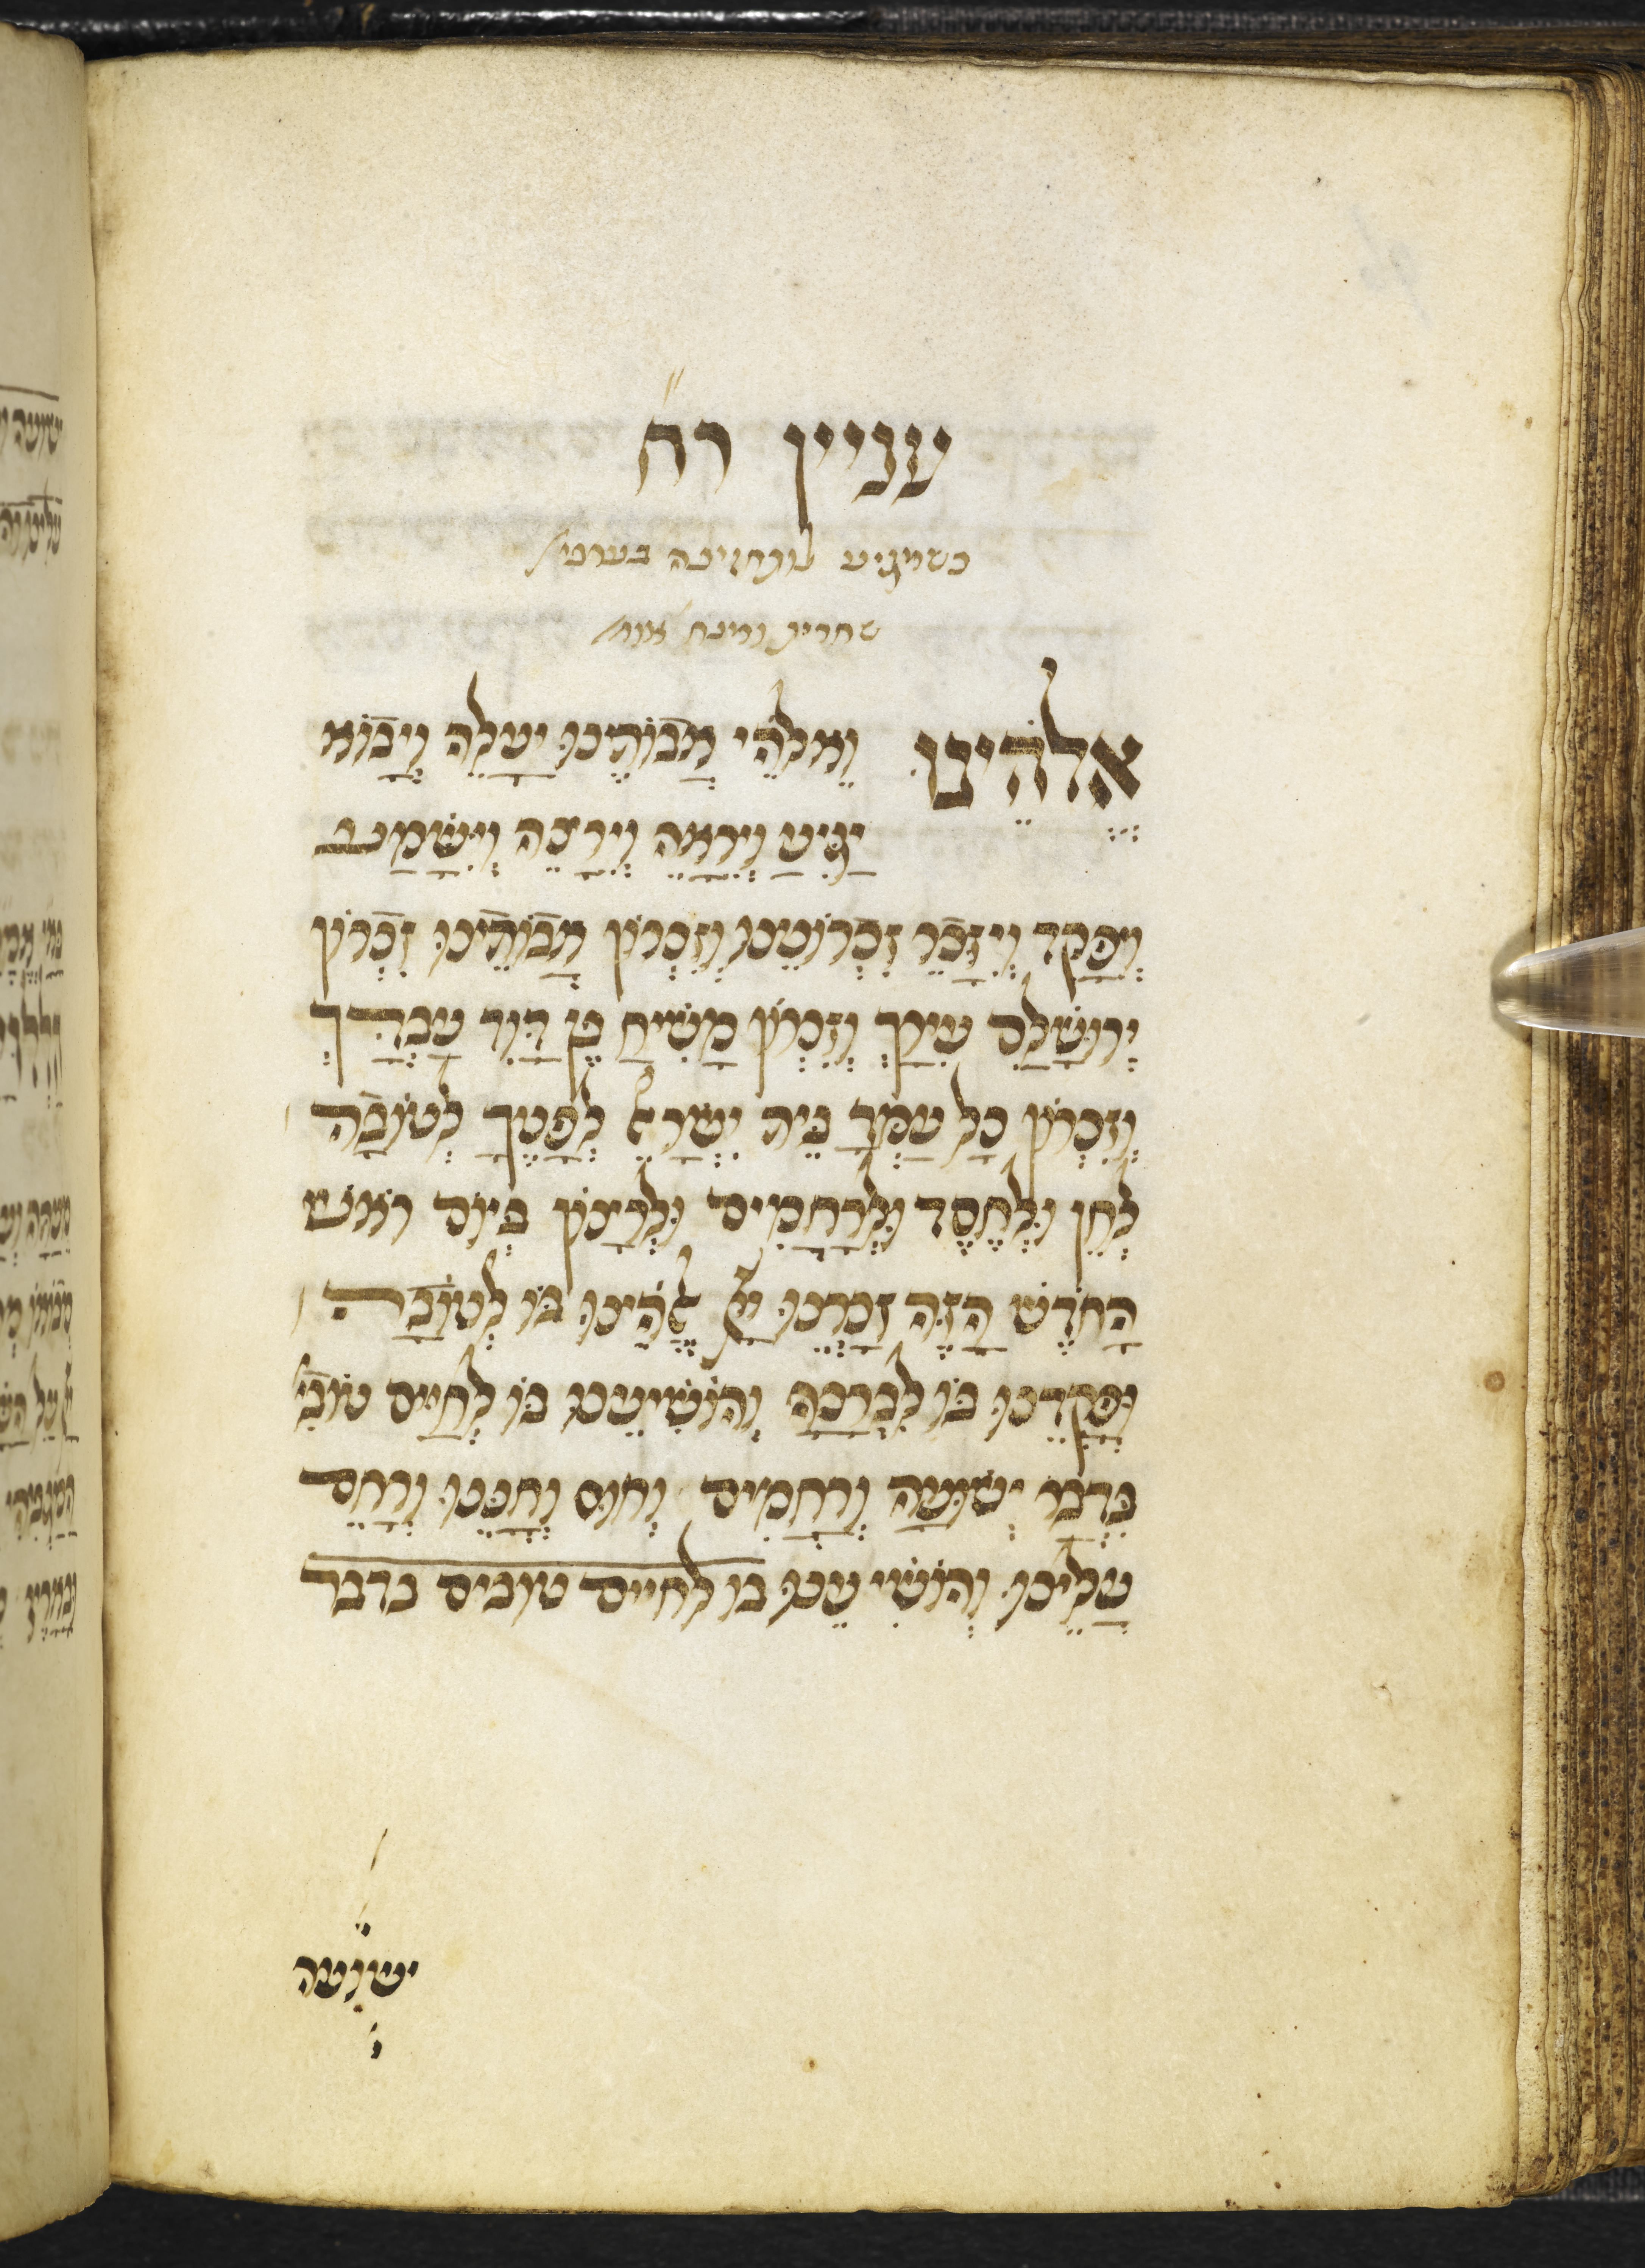 עניין ר״ח
כשמגיע לעבודה בערבי׳
שחרית ומנח׳ אומ׳
אֱלֹהֵינוּ וֵאלֹהֵי אֲבוֹתֵינוּ יַעֲלֶה וְיָבוֹא
יַגִּיעַ וְיֵרָאֶה וְיֵרָצֶה וְיִשָּׁמַע
וְיִפָּקֵד וְיִזָּכֵר זִכְרוֹנֵנוּ וְזִכְרוֹן אֲבוֹתֵינוּ זִכְרוֹן
יְרוּשָׁלַםִ עִירָךְ וְזִכְרוֹן מָשִׁיחַ בֶּן דָּוִד עַבְדָּךְ
וְזִכְרוֹן כָּל עַמְּךָ בֵּית יִשְׂרָאֵל לְפָנֶיךָ לְטוֹבָה
לְחֵן וּלְחֶסֶד וּלְרַחֲמִים וּלְרָצוֹן בְּיוֹם רֹאשׁ
הַחֹדֶשׁ הַזֶּה זָכְרֵנוּ יְיָ אֱלֹהֵינוּ בּוֹ לְטוֹבָה
וּפָקְדֵנוּ בּוֹ לִבְרָכָה וְהוֹשִׁיעֵנוּ בּוֹ לְחַיִּים טוֹבִי׳
בִּדְבַר יְשׁוּעָה וְרַחֲמִים וְחוּס וְחָנֵּנוּ וְרַחֵם
עָלֵינוּ וְהוֹשִׁיעֵנוּ בו לחיים טובים בדבר
ישועה